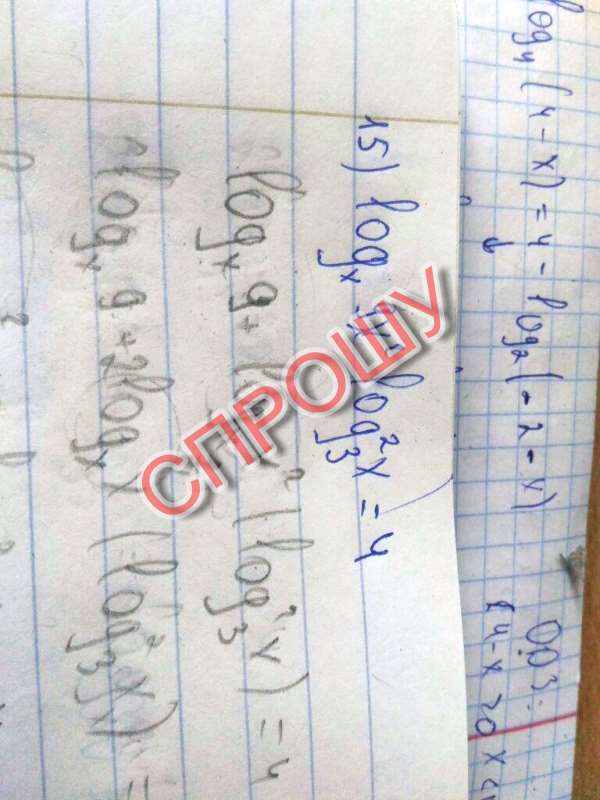 log₄(4-x)=4-log₂(-2-x)
ОДЗ:
{4-x>0
15) logₓ 9x² · log₃²x = 4
logₓ 9 +
(log₃²x) = 4
logₓ 9 + 2logₓ x (log₃²x) =
СПРОШУ